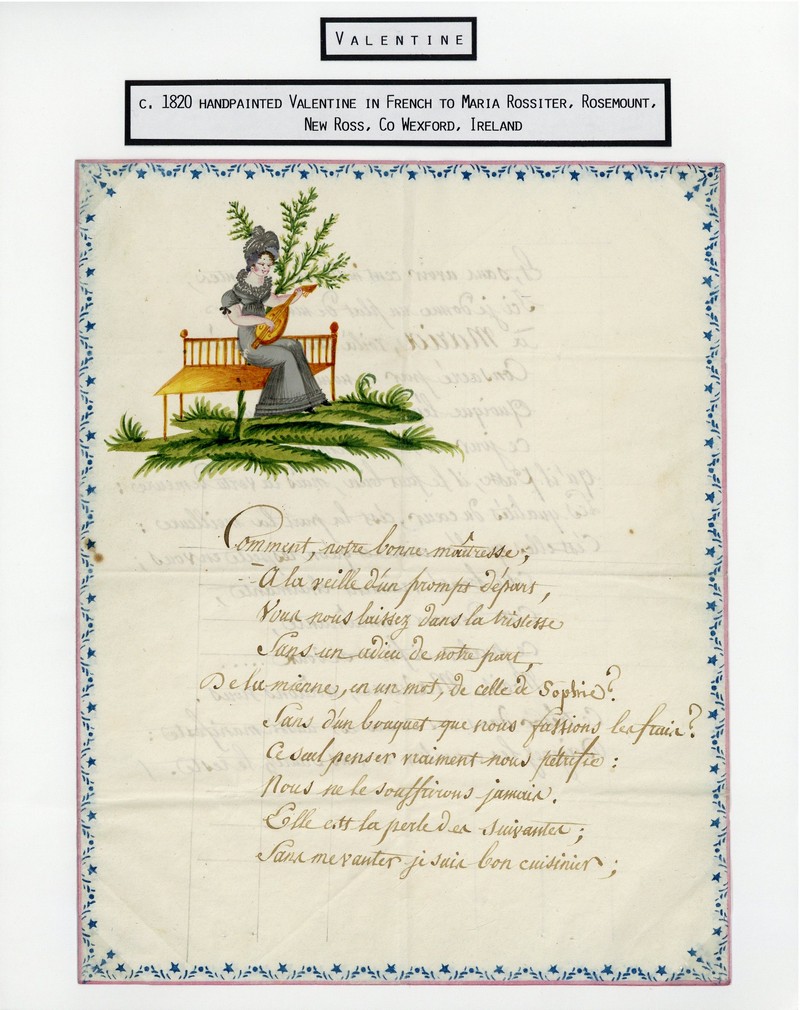 VALENTINE
C. 1820 HANDPAINTED VALENTINE IN FRENCH TO MARIA ROSSITER, ROSEMOUNT,
NEW ROSS, CO WEXFORD, IRELAND
Comment, notre bonne maîtresse;
A la veille d'un prompt départ,
Vous nous laissez dans la tristesse
Sans un adieu de notre part,
De la mienne, en un mot, de celle de Sophie?
Sans d'un bouquet que nous fassions les frais?
Ce seul penser vraiment nous pétrifie:
Nous ne le souffrirons jamais.
Elle est la perle des suivantes;
Sans me vanter je suis bon cuisinier;